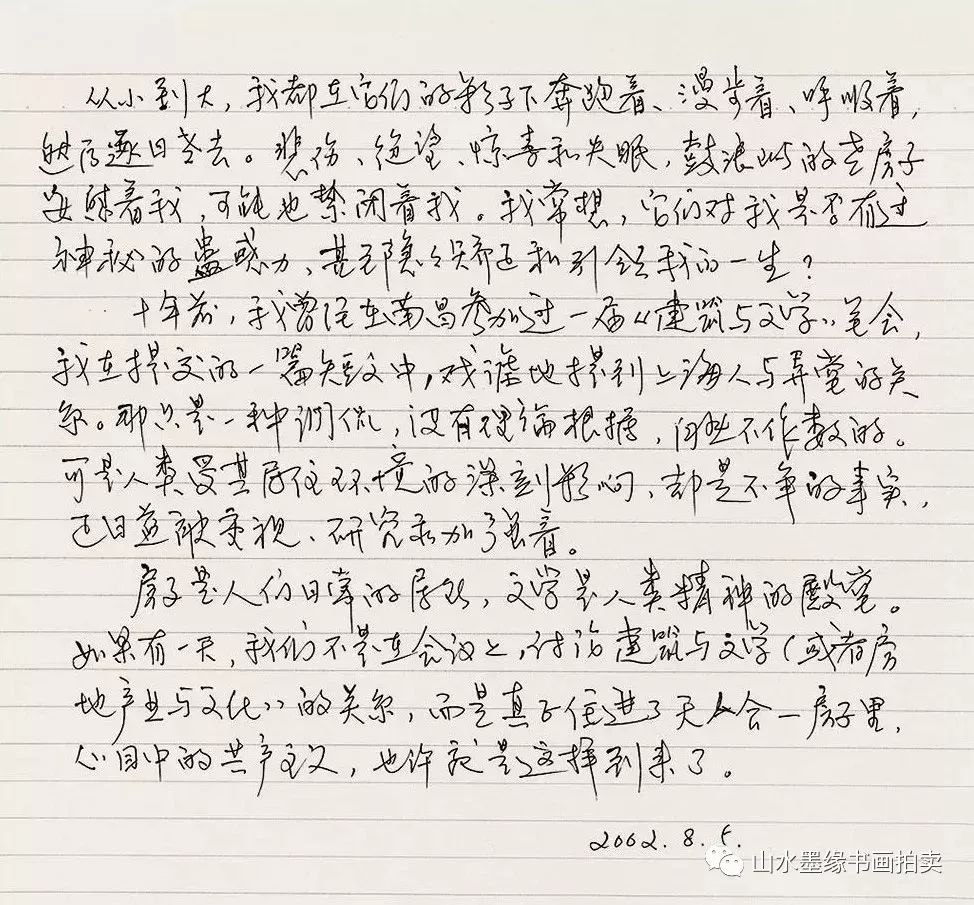 从小到大，我都在它们的影子下奔跑着、漫步着、呼吸着，
然后逐日老去。悲伤、绝望、惊喜和失眠，鼓浪屿的老房子
安慰着我，可能也禁闭着我。我常想，它们对我是否有过
神秘的蛊惑力，甚至隐隐矫正和引领我的一生？
十年前，我曾经在南昌参加过一届《建筑与文学》笔会，
我在提交的一篇短文中，戏谑地提到上海人与弄堂的关
系。那只是一种调侃，没有理论根据，自然不作数的。
可是人类受其居住环境的深刻影响，却是不争的事实，
正日益被重视、研究和加强着。
房子是人们日常的居所，文学是人类精神的殿堂。
如果有一天，我们不是在会议上，讨论建筑与文学（或者房
地产业与文化）的关系，而是真正住进了天人合一房子里，
心目中的共产主义，也许就是这样到来了。
2002.8.5.
山水墨缘书画拍卖